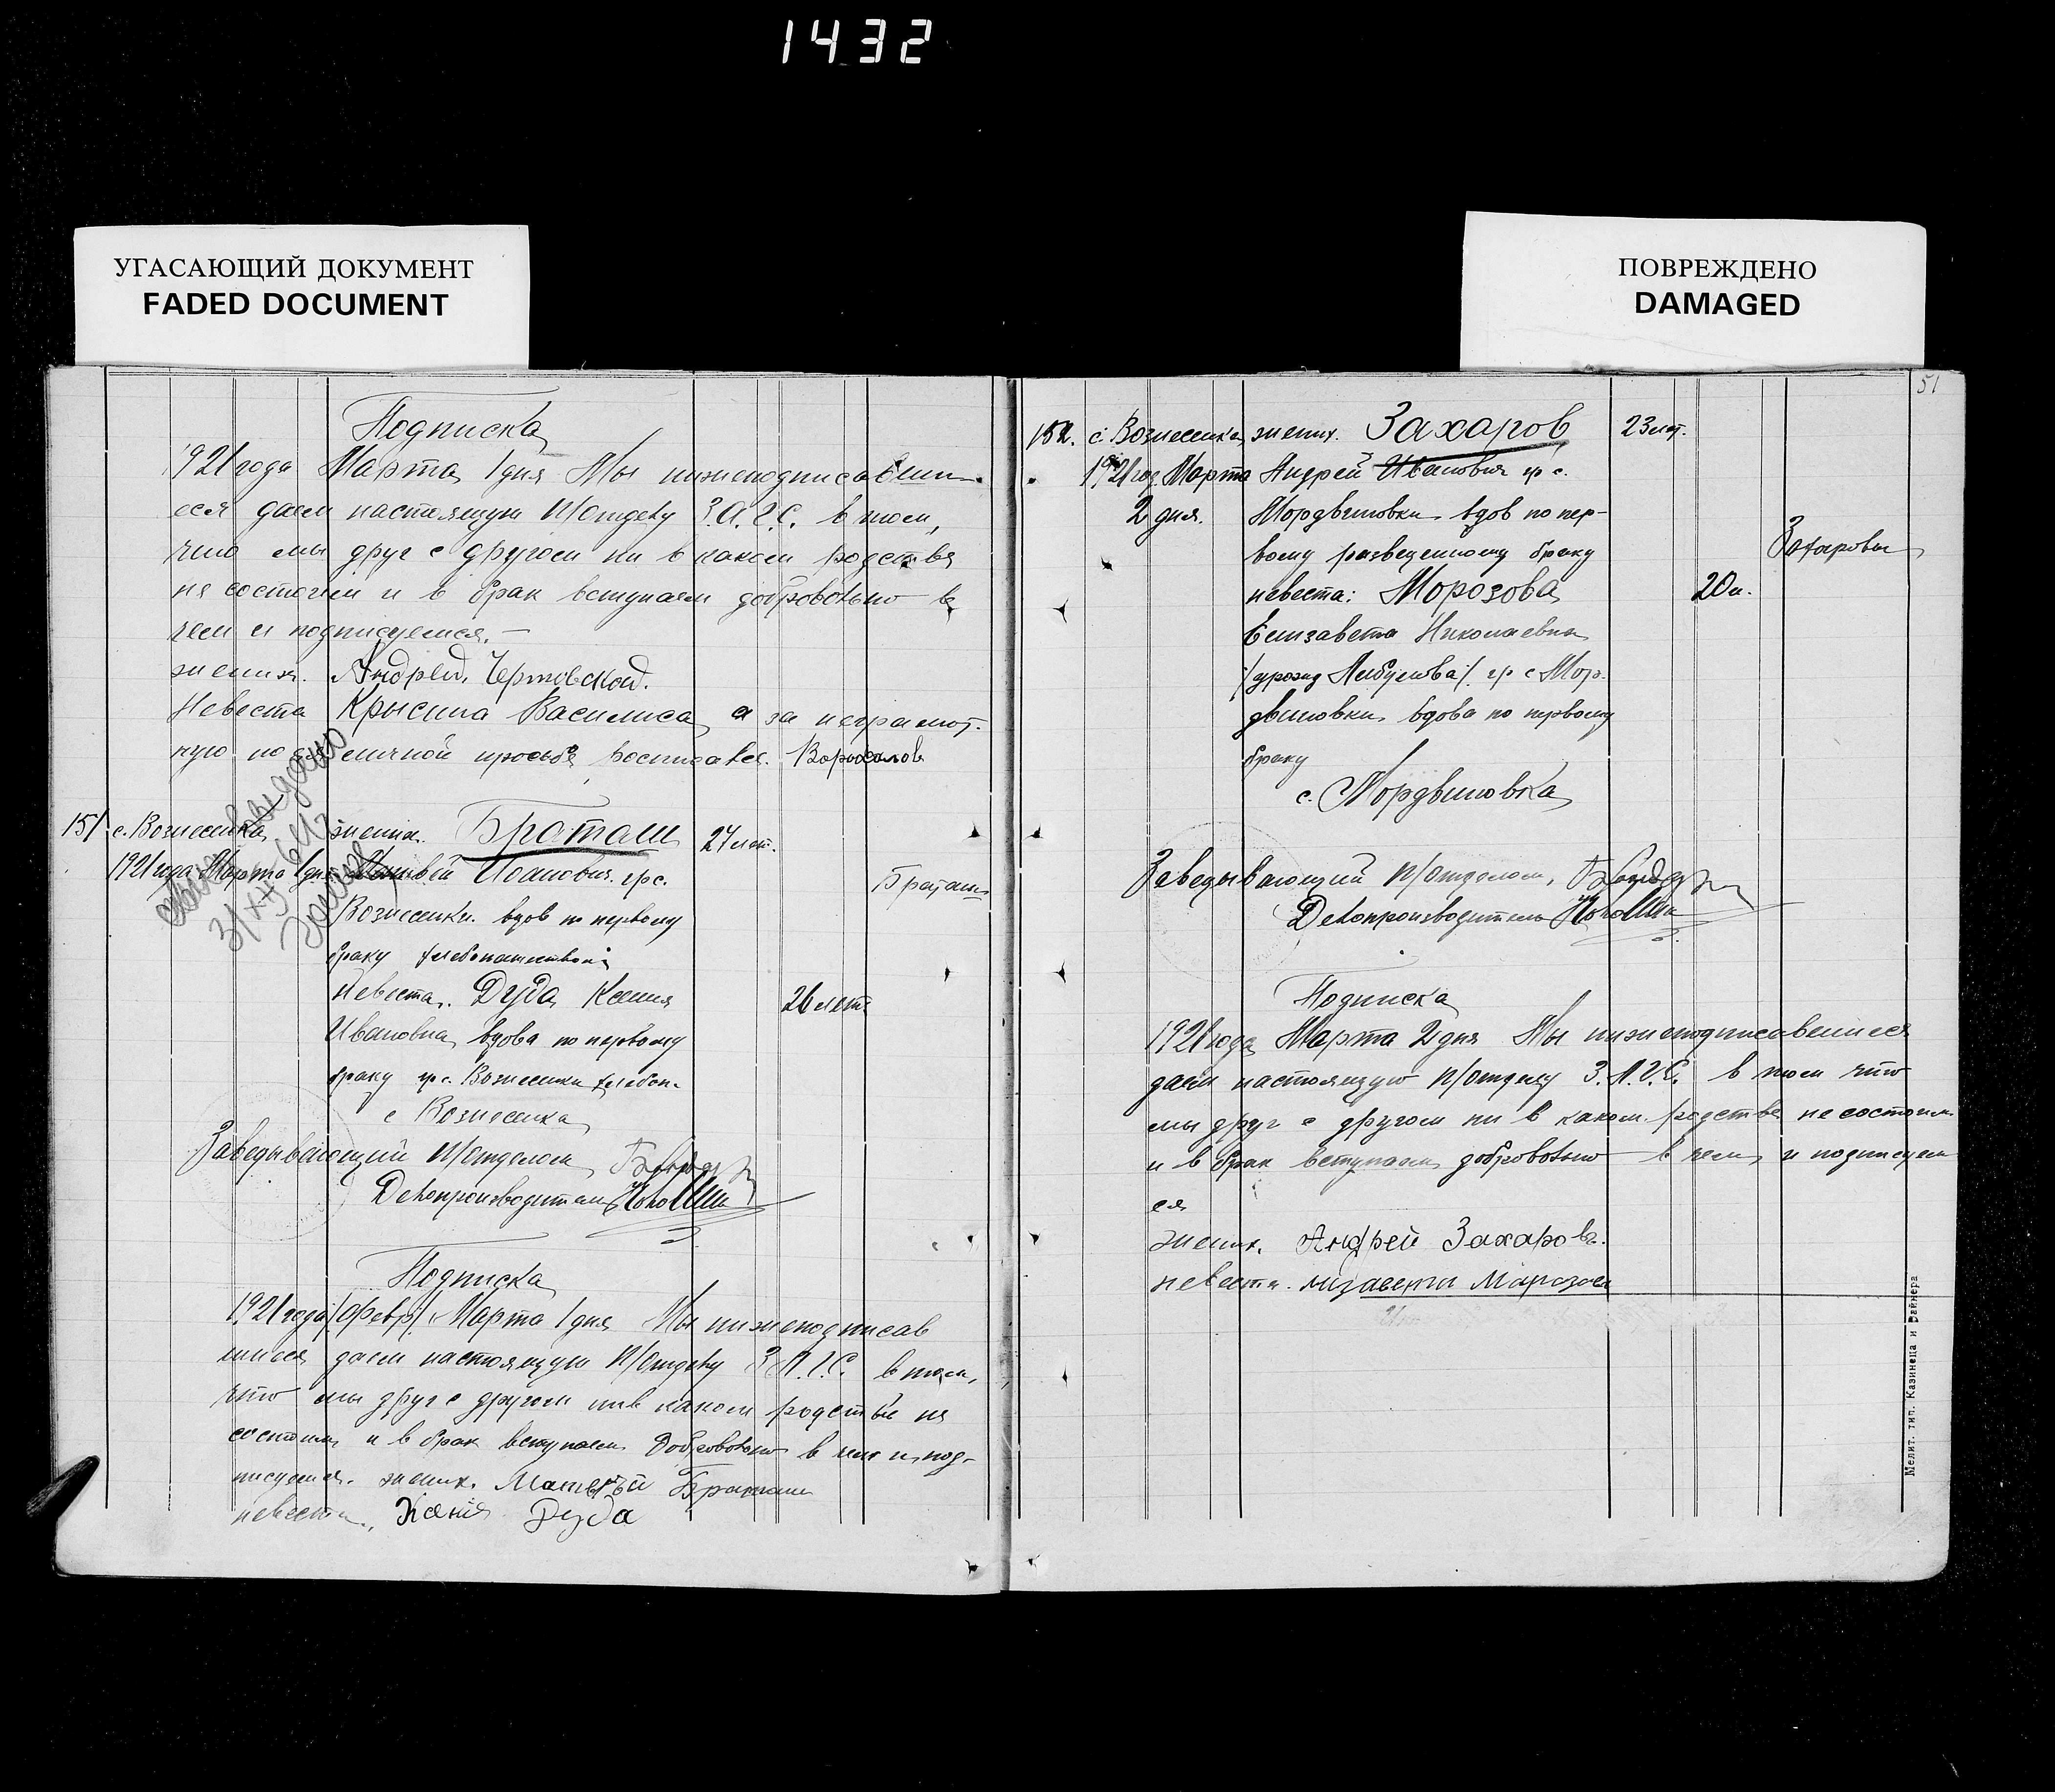 1432
УГАСАЮЩИЙ ДОКУМЕНТ
FADED DOCUMENT
ПОВРЕЖДЕНО
DAMAGED
Подписка
1921 года Марта 1 дня Мы нижеподписавши-
еся даем настоящую п/отделу З.А.Г.С. в том,
что мы друг с другом ни в каком родстве
не состоим и в брак вступаем добровольно в
чем и подписуемся. —
жених. Андрей Чертовской.
Невеста Крысина Василиса а за неграмот-
ную по личной просьбе росписался.
выдано
151 с. Вознесенка жених. Браташ 27 лет.
1921 года Марта 1 дня Иванович гр с.
Браташ
Вознесенки вдов по первому
браку хлебопашество
Невеста. Дуда Ксения
26 лет
Ивановна вдова по первому
браку гр с. Вознесенки хлебоп.
с Вознесенка
Заведывающий п/отделом
Делопроизводитель
Подписка
1921 года /февр/ Марта 1 дня Мы нижеподписав
шиеся даем настоящую п/отделу З.А.Г.С. в том,
что мы друг с другом ни в каком родстве не
состоим и в брак вступаем добровольно в чем и под-
писуемся. жених. Матвей Браташ
невеста. Ксенія Дуда
51
152. с. Вознесенка жених. Захаров 23 лет.
1921 год. Марта Андрей Иванович гр с.
2 дня. Мордвиновки вдов по пер-
вому разведенному браку
Захаровы
невеста: Морозова 20 л.
Елизавета Николаевна
/урожд / гр с Мор-
двиновки вдова по первому
браку
с. Мордвиновка
Заведывающий п/отделом,
Делопроизводитель
Подписка
1921 года Марта 2 дня Мы нижеподписавшиеся
даем настоящую п/отделу З.А.Г.С. в том что
мы друг с другом ни в каком родстве не состоим
и в брак вступаем добровольно в чем и подписуем
ся
жених. Андрей Захаровъ.
невеста. Морозова
Мелит. тип. Казинеца и Вайнера